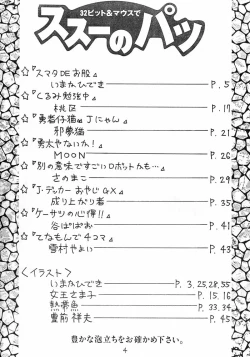 32ビット&マウスで
ススーのパッ
☆『スマタDEお股』
いまかひでき — P.5
☆『くるみ勉強中』
桃区 — P.17
☆『勇者仔猫なJにゃん』
邪夢猫 — P.21
☆『勇太やないか!』
MOON — P.26
☆『別の意味ですごいロボットかも…』
さのまこ — P.29
☆『J・デッカー おやじGX』
成り上がり者 — P.35
☆『ケーサツの心得!!』
谷ぱぱお — P.41
☆『てなもんで4コマ』
雪村やよい — P.43
<イラスト>
いまかひでき — P.3,25,28,55
女王さま子 — P.15,16
熱帯魚 — P.33,34
豊前祥夫 — P.45
豊かな泡立ちをお確かめ下さい。
4